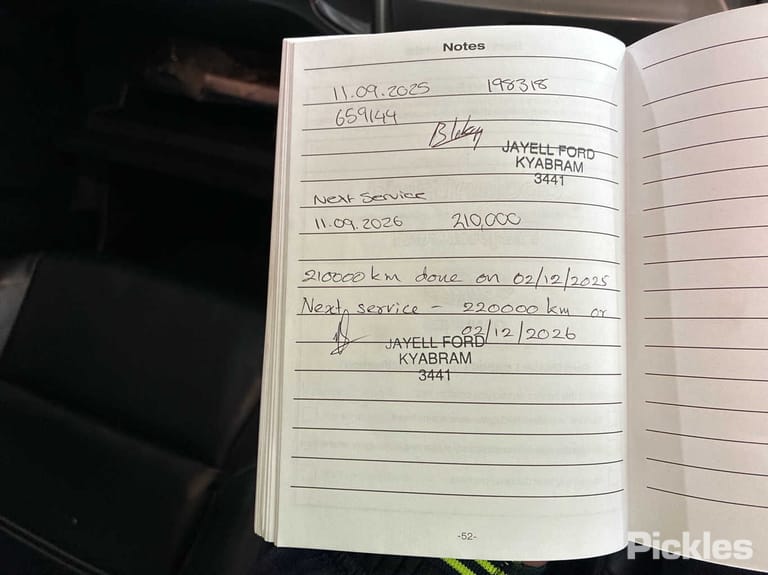 Notes
11.09.2025 198318
659144
JAYELL FORD
KYABRAM
3441
Next Service
11.09.2026 210,000
210000 km done on 02/12/2025
Next service - 220000 km or
02/12/2026
JAYELL FORD
KYABRAM
3441
-52-
Pickles